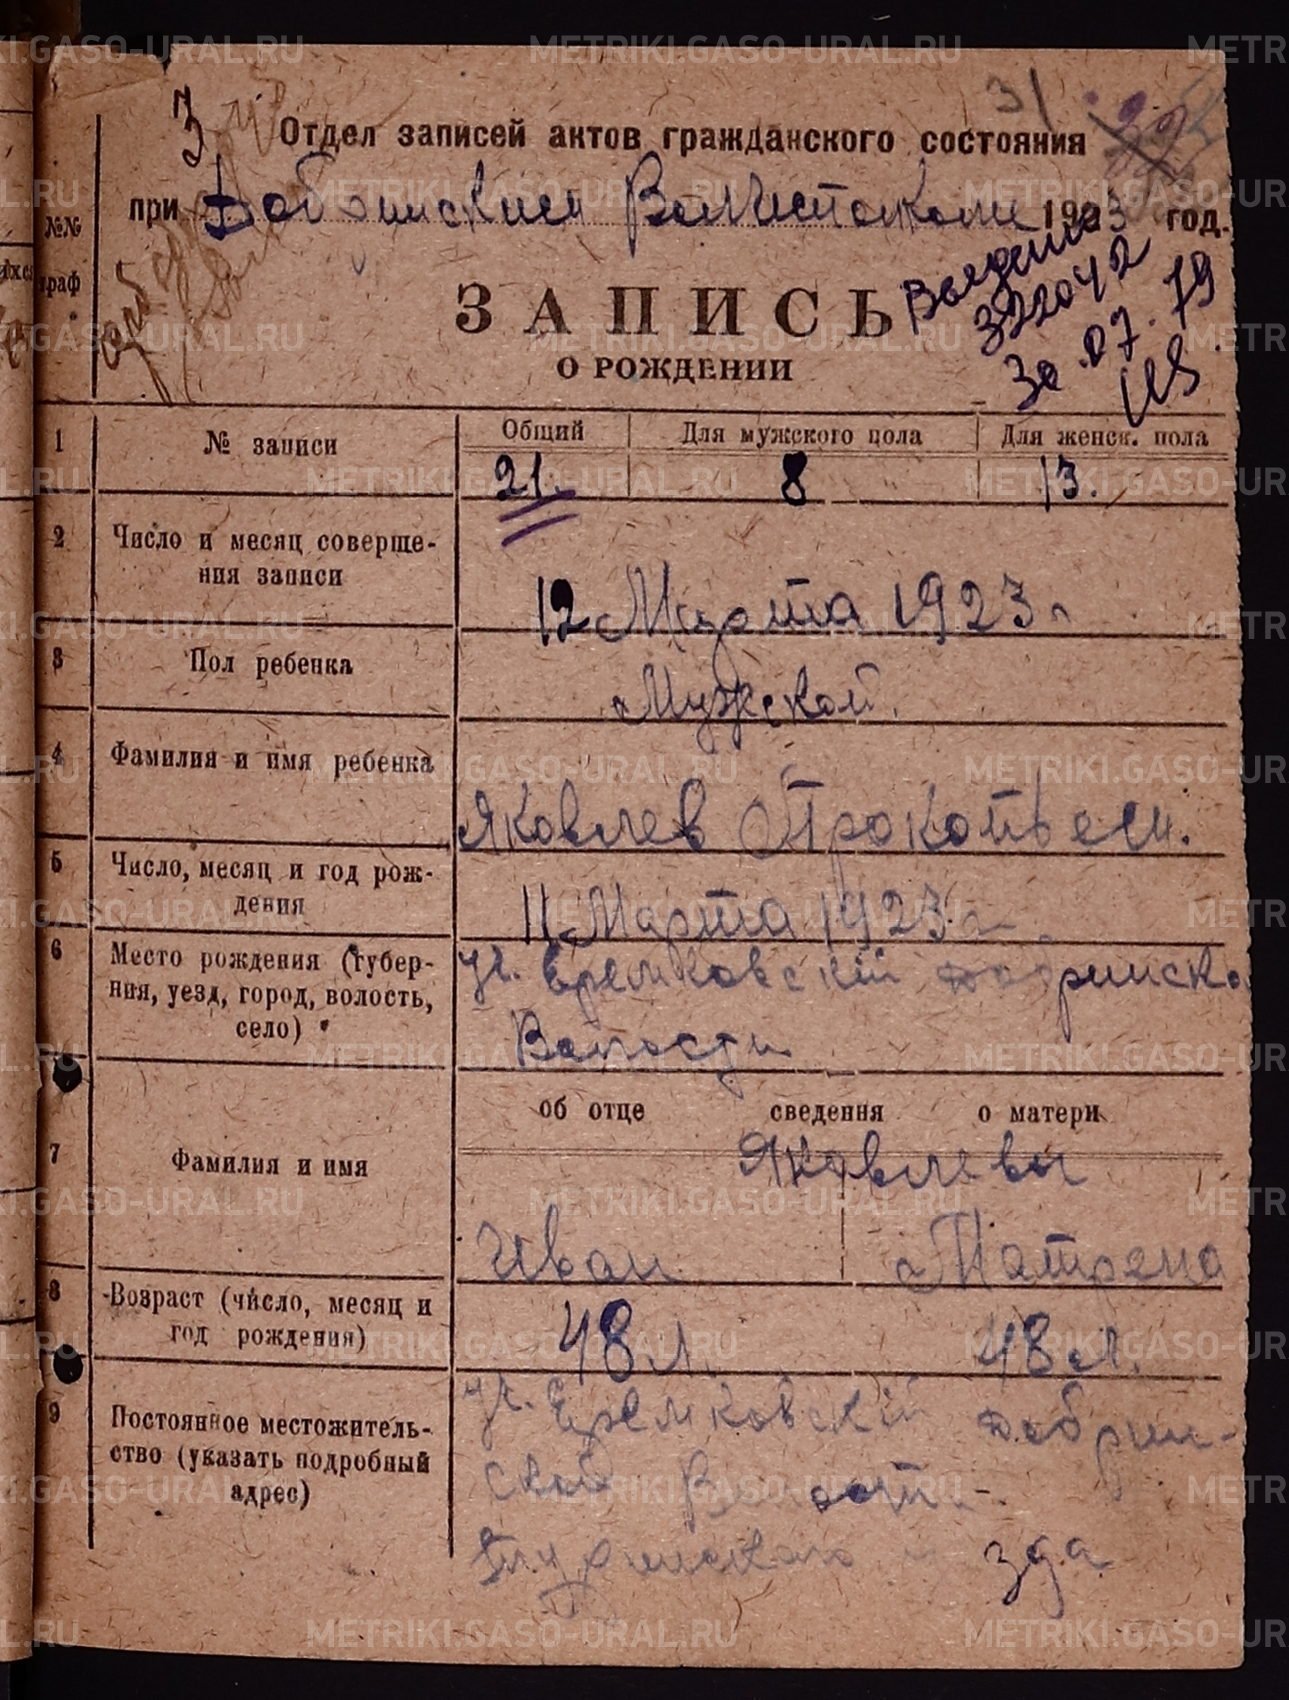 31
3 Отдел записей актов гражданского состояния
при Добринским Волисполкоми 1923 год.
№№
граф
ЗАПИСЬ
О РОЖДЕНИИ
322042
30.07.79
1 № записи Общий Для мужского пола Для женск. пола
21. 8 13.
2 Число и месяц соверше-
ния записи
12 Марта 1923 г
3 Пол ребенка Мужской.
4 Фамилия и имя ребенка
Яковлев Прокопьем.
5 Число, месяц и год рож-
дения
11 Марта 1923 г.
6 Место рождения (губер-
ния, уезд, город, волость,
село)
Еремковскій Добринско
Волости
об отце сведения о матери
7 Фамилия и имя
Яковлевы
Иван Матрена
8 Возраст (число, месяц и
год рождения)
48 л. 48 л.
9 Постоянное местожитель-
ство (указать подробный
адрес)
Еремковскій Добрин-
ской Волости
Туринского уезда
METRIKI.GASO-URAL.RU